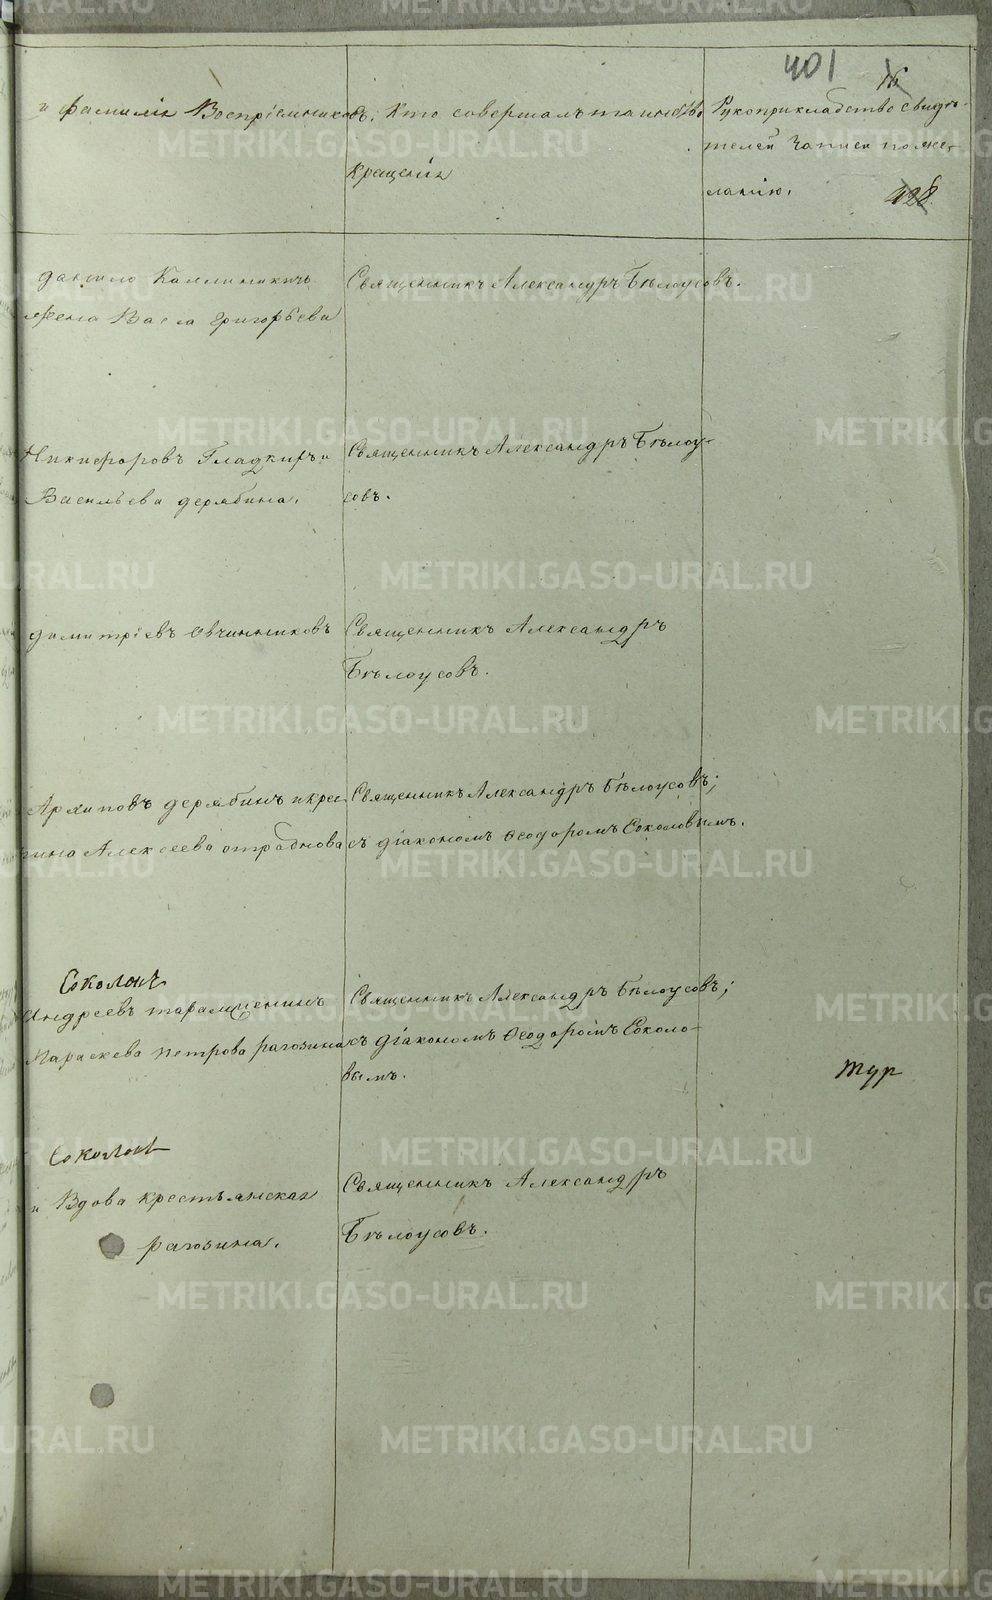 401
16
и фамилія Воспріемниковъ.
Кто совершалъ таинство
крещенія
Рукоприкладство свидѣ-
телей записи по же-
ланію.
428
данило Каллиникичъ
жена Васса григорьева
Священникъ Александръ Бѣлоусовъ.
Никифоровъ Гладкихъ и
Васильева дерябина.
Священникъ Александръ Бѣлоу-
совъ.
димитріевъ Овчинниковъ
Священникъ Александръ
Бѣлоусовъ.
Архиповъ дерябинъ и крес
Алексѣева отраднова
Священникъ Александръ Бѣлоусовъ;
съ діакономъ Ѳеодоромъ Соколовымъ.
Андреевъ
Параскева петрова рагозина
Священникъ Александръ Бѣлоусовъ;
съ діакономъ Ѳеодоромъ Соколо-
вымъ.
тур
и Вдова крестьянская
рагозина.
Священникъ Александръ
Бѣлоусовъ.
METRIKI.GASO-URAL.RU